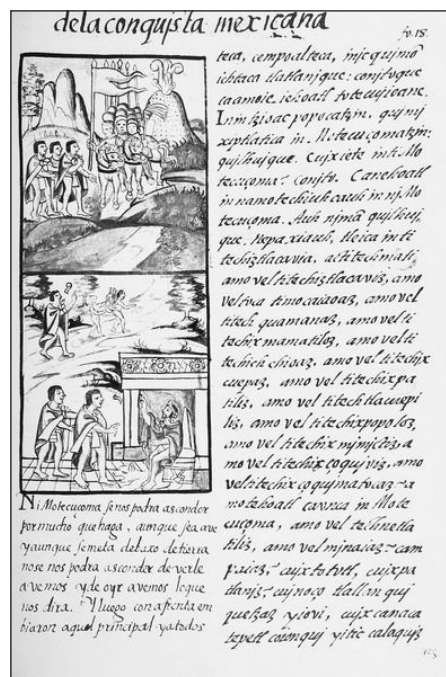 de la conquista mexicana
fo. 18.
Ni Motecuçoma se nos podra asconder
por mucho que haga, aunque sea ave
y aunque se meta debaxo de tierra
no se nos podra asconder de verle
avemos y de oyr avemos lo que
nos dira. Y luego con afrenta em
biaron aquel principal y a todos
teca, cempoalteca, injc quimõ
ichtaca tlatlanique: conjtoque
caamo ie iehoatl totecuiioane.
Injn tzioac popocatzin. quimj
xiptlatica in Motecuçomatzin:
quilhuique. Cuix iete in ti Mo
tecuçoma? Conjto. Canehoatl
in namotechiuhcauh in nj Mo
tecuçoma. Auh njmã quilhuj
que. Nepa xiauh, tleica in ti
techiztlacavia, ac titechmati,
amo vel titechiztlacaviz, amo
vel toca timocacaiaoaz, amo vel
titech quamanaz, amo vel ti
techix mamatiloz, amo vel ti
techich chioaz, amo vel titechix
cuepaz, amo vel titechixpa
tiliz, amo vel titechtlacuepi
liz, amo vel titechixpopoloz,
amo vel titechix mjmictiz, a
mo vel titechix çoquiviz, amo
vel titechix çoquimatocaz: a
motehoatl ca vnca in Mote
cuçoma, amo vel technetla
tiliz, amo vel mjnaiaz: cam
paiaz, cuix tototl, cuix pa
tlaniz, cuinoço tlallan qui
quetzaz yiovi, cuix canaca
tepetl coionqui yitic calaquiz